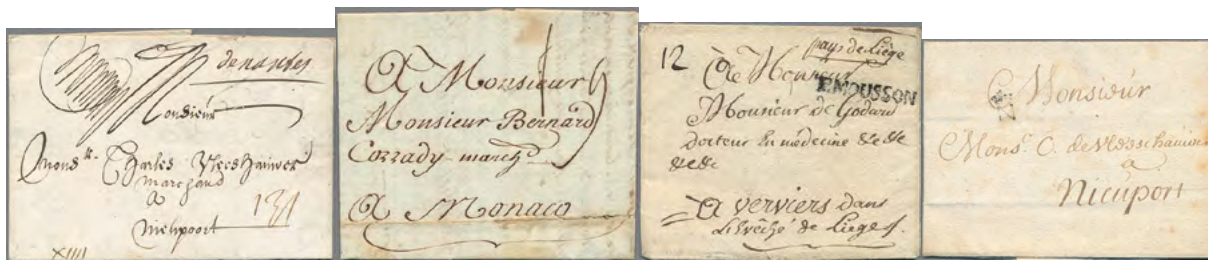 de nantes
Monsieur
Mons.r Charles Vleeshauwer
marchand
a
Niewpoort
131
XIIII
A Monsieur
Monsieur Bernard
Corrady march.d
A Monaco
12
pays de Liège
A Monsieur
P.MOUSSON
Monsieur de Godard
docteur en medecine &c &c
&c &c
A verviers dans
L'Evêché de Liege
Monsieur
Mons.r C. de Vleeschauwer
a
Nieuport